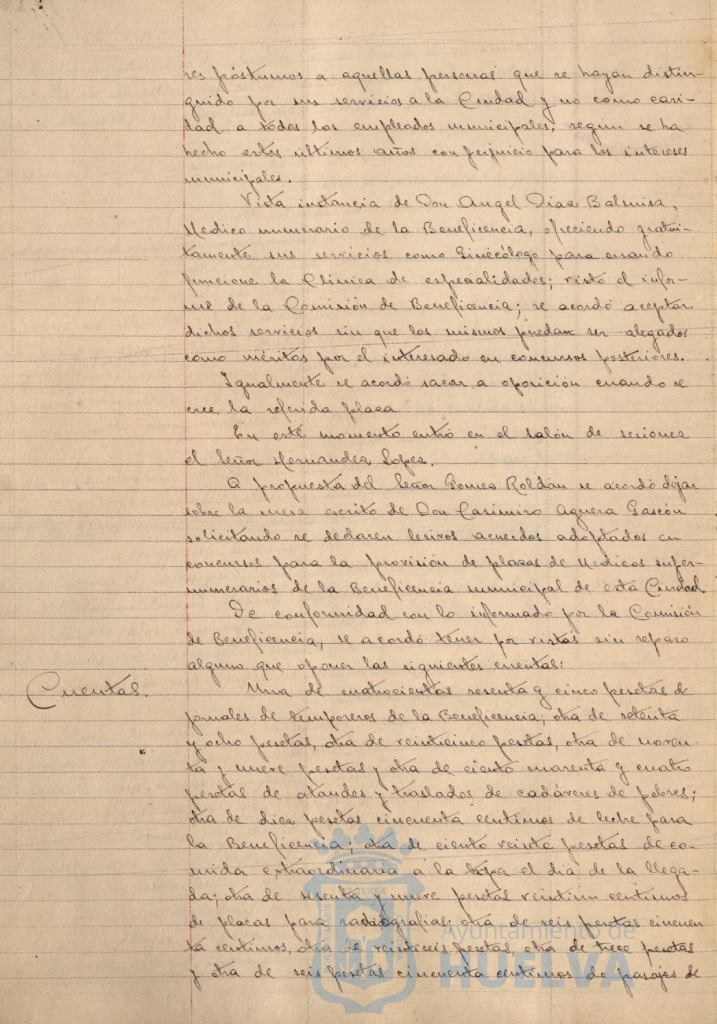 res póstumos a aquellas personas que se hayan distin-
guido por sus servicios a la Ciudad y no como cari-
dad a todos los empleados municipales, segun se ha
hecho estos últimos años con perjuicio para los intereses
municipales.
Vista instancia de Don Angel Diaz Balmisa,
Medico numerario de la Beneficencia, ofreciendo gratui-
tamente sus servicios como Ginecólogo para cuando
funcione la Clinica de especialidades; visto el infor-
me de la Comisión de Beneficencia; se acordó aceptar
dichos servicios sin que los mismos puedan ser alegados
como méritos por el interesado en concursos posteriores.
Igualmente se acordó sacar a oposición cuando se
cree la referida plaza
En este momento entró en el salón de sesiones
el Señor Hernandez Lopez.
A propuesta del Señor Gomez Roldán se acordó dejar
sobre la mesa escrito de Don Casimiro Aguera Gascón
solicitando se declaren lesivos acuerdos adoptados en
concursos para la provisión de plazas de Medicos super-
numerarios de la Beneficencia municipal de esta Ciudad.
De conformidad con lo informado por la Comisión
de Beneficencia, se acordó tener por vistas sin reparo
alguno que oponer las siguientes cuentas:
Cuentas.
Una de cuatrocientas sesenta y cinco pesetas de
jornales de temporeros de la Beneficencia; otra de setenta
y ocho pesetas, otra de veinticinco pesetas, otra de noven-
ta y nueve pesetas y otra de ciento cuarenta y cuatro
pesetas de ataudes y traslados de cadáveres de pobres;
otra de diez pesetas cincuenta centimos de leche para
la Beneficencia; otra de ciento veinte pesetas de co-
mida extraordinaria a la tropa el dia de la llega-
da; otra de sesenta y nueve pesetas veintiun centimos
de placas para radiografias; otra de seis pesetas cincuen
ta centimos, otra de veintiseis pesetas, otra de trece pesetas
y otra de seis pesetas cincuenta centimos de pasajes de
Ayuntamiento de
HUELVA